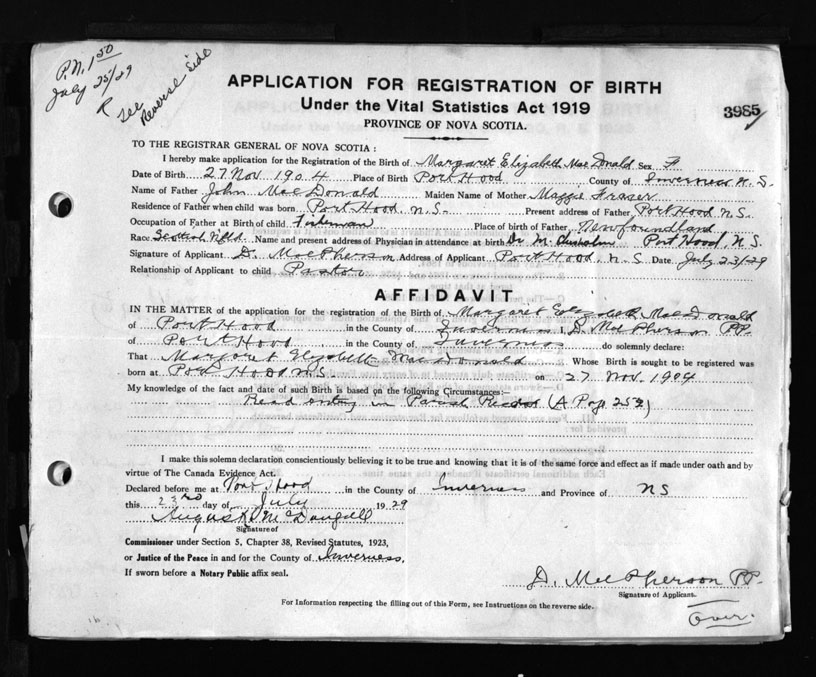 P.N. 1.50
July 25/29
R see
Reverse Side
APPLICATION FOR REGISTRATION OF BIRTH
Under the Vital Statistics Act 1919
PROVINCE OF NOVA SCOTIA.
3985
TO THE REGISTRAR GENERAL OF NOVA SCOTIA:
I hereby make application for the Registration of the Birth of Margaret Elizabeth MacDonald Sex F
Date of Birth 27 Nov 1904 Place of Birth Port Hood County of Inverness N.S.
Name of Father John MacDonald Maiden Name of Mother Maggie Fraser
Residence of Father when child was born Port Hood, N.S. Present address of Father Port Hood N.S.
Occupation of Father at Birth of child Fisherman Place of birth of Father Newfoundland
Race Scottish Name and present address of Physician in attendance at birth Dr M. Chisholm Port Hood, N.S.
Signature of Applicant D. MacPherson Address of Applicant Port Hood, N.S Date July 23/29
Relationship of Applicant to child Pastor
AFFIDAVIT
IN THE MATTER of the application for the registration of the Birth of Margaret Elizabeth MacDonald
of Port Hood in the County of Inverness I, D. MacPherson PP.
of Port Hood in the County of Inverness do solemnly declare:
That Margaret Elizabeth MacDonald Whose Birth is sought to be registered was
born at Port Hood N.S. on 27 Nov. 1904
My knowledge of the fact and date of such Birth is based on the following Circumstances:—
Read entry in Parish Record (A Page 252)
I make this solemn declaration conscientiously believing it to be true and knowing that it is of the same force and effect as if made under oath and by
virtue of The Canada Evidence Act.
Declared before me at Port Hood in the County of Inverness and Province of NS
this 23rd day of July 1929
Angus McDougall
Signature of
Commissioner under Section 5, Chapter 38, Revised Statutes, 1923,
or Justice of the Peace in and for the County of Inverness.
If sworn before a Notary Public affix seal.
D. MacPherson PP.
Signature of Applicant.
For Information respecting the filling out of this Form, see Instructions on the reverse side.
Over.